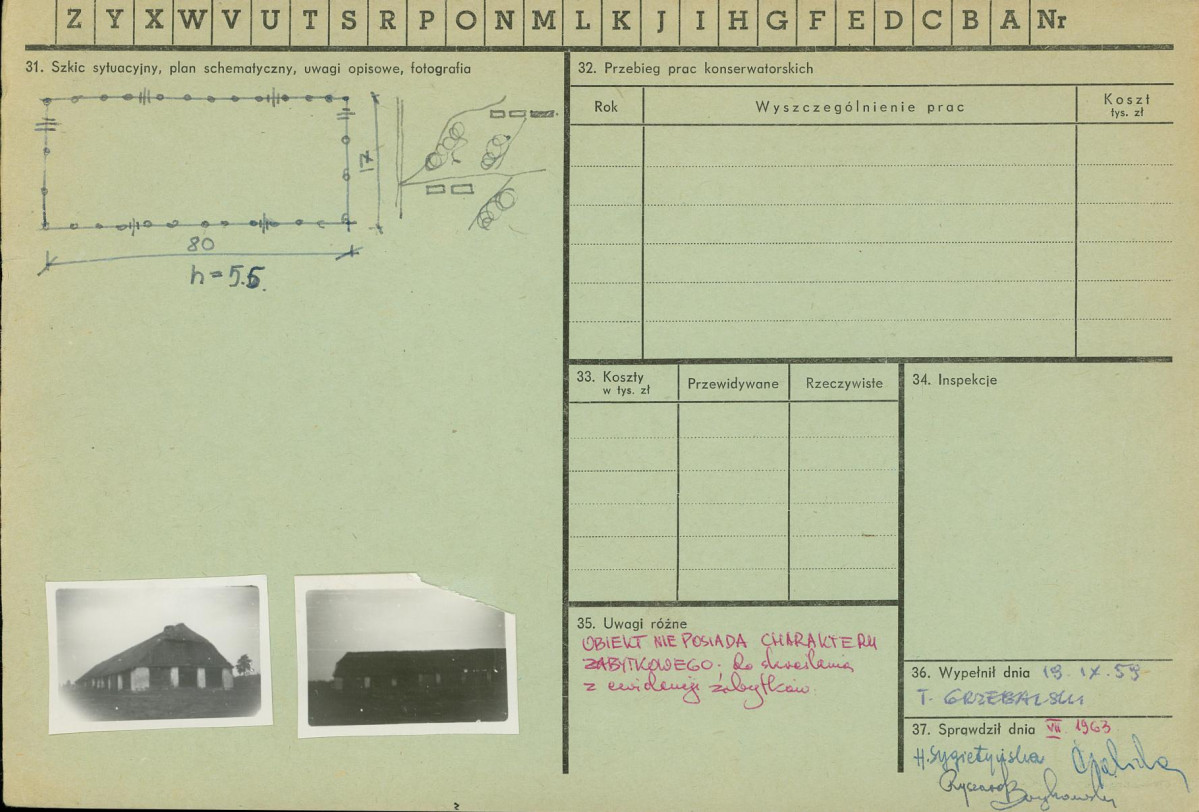 Z Y X W V U T S R P O N M L K J I H G F E D C B A Nr
31. Szkic sytuacyjny, plan schematyczny, uwagi opisowe, fotografia
17
80
h = 5.5
32. Przebieg prac konserwatorskich
Rok
Wyszczególnienie prac
Koszt
tys. zł
33. Koszty
w tys. zł
Przewidywane
Rzeczywiste
34. Inspekcje
35. Uwagi różne
OBIEKT NIE POSIADA CHARAKTERU
ZABYTKOWEGO. Do skreślenia
z ewidencji zabytków.
36. Wypełnił dnia 19.IX.59
T. GRZEBALSKI
37. Sprawdził dnia VII 1963
H. Sygietyńska
Ryszard